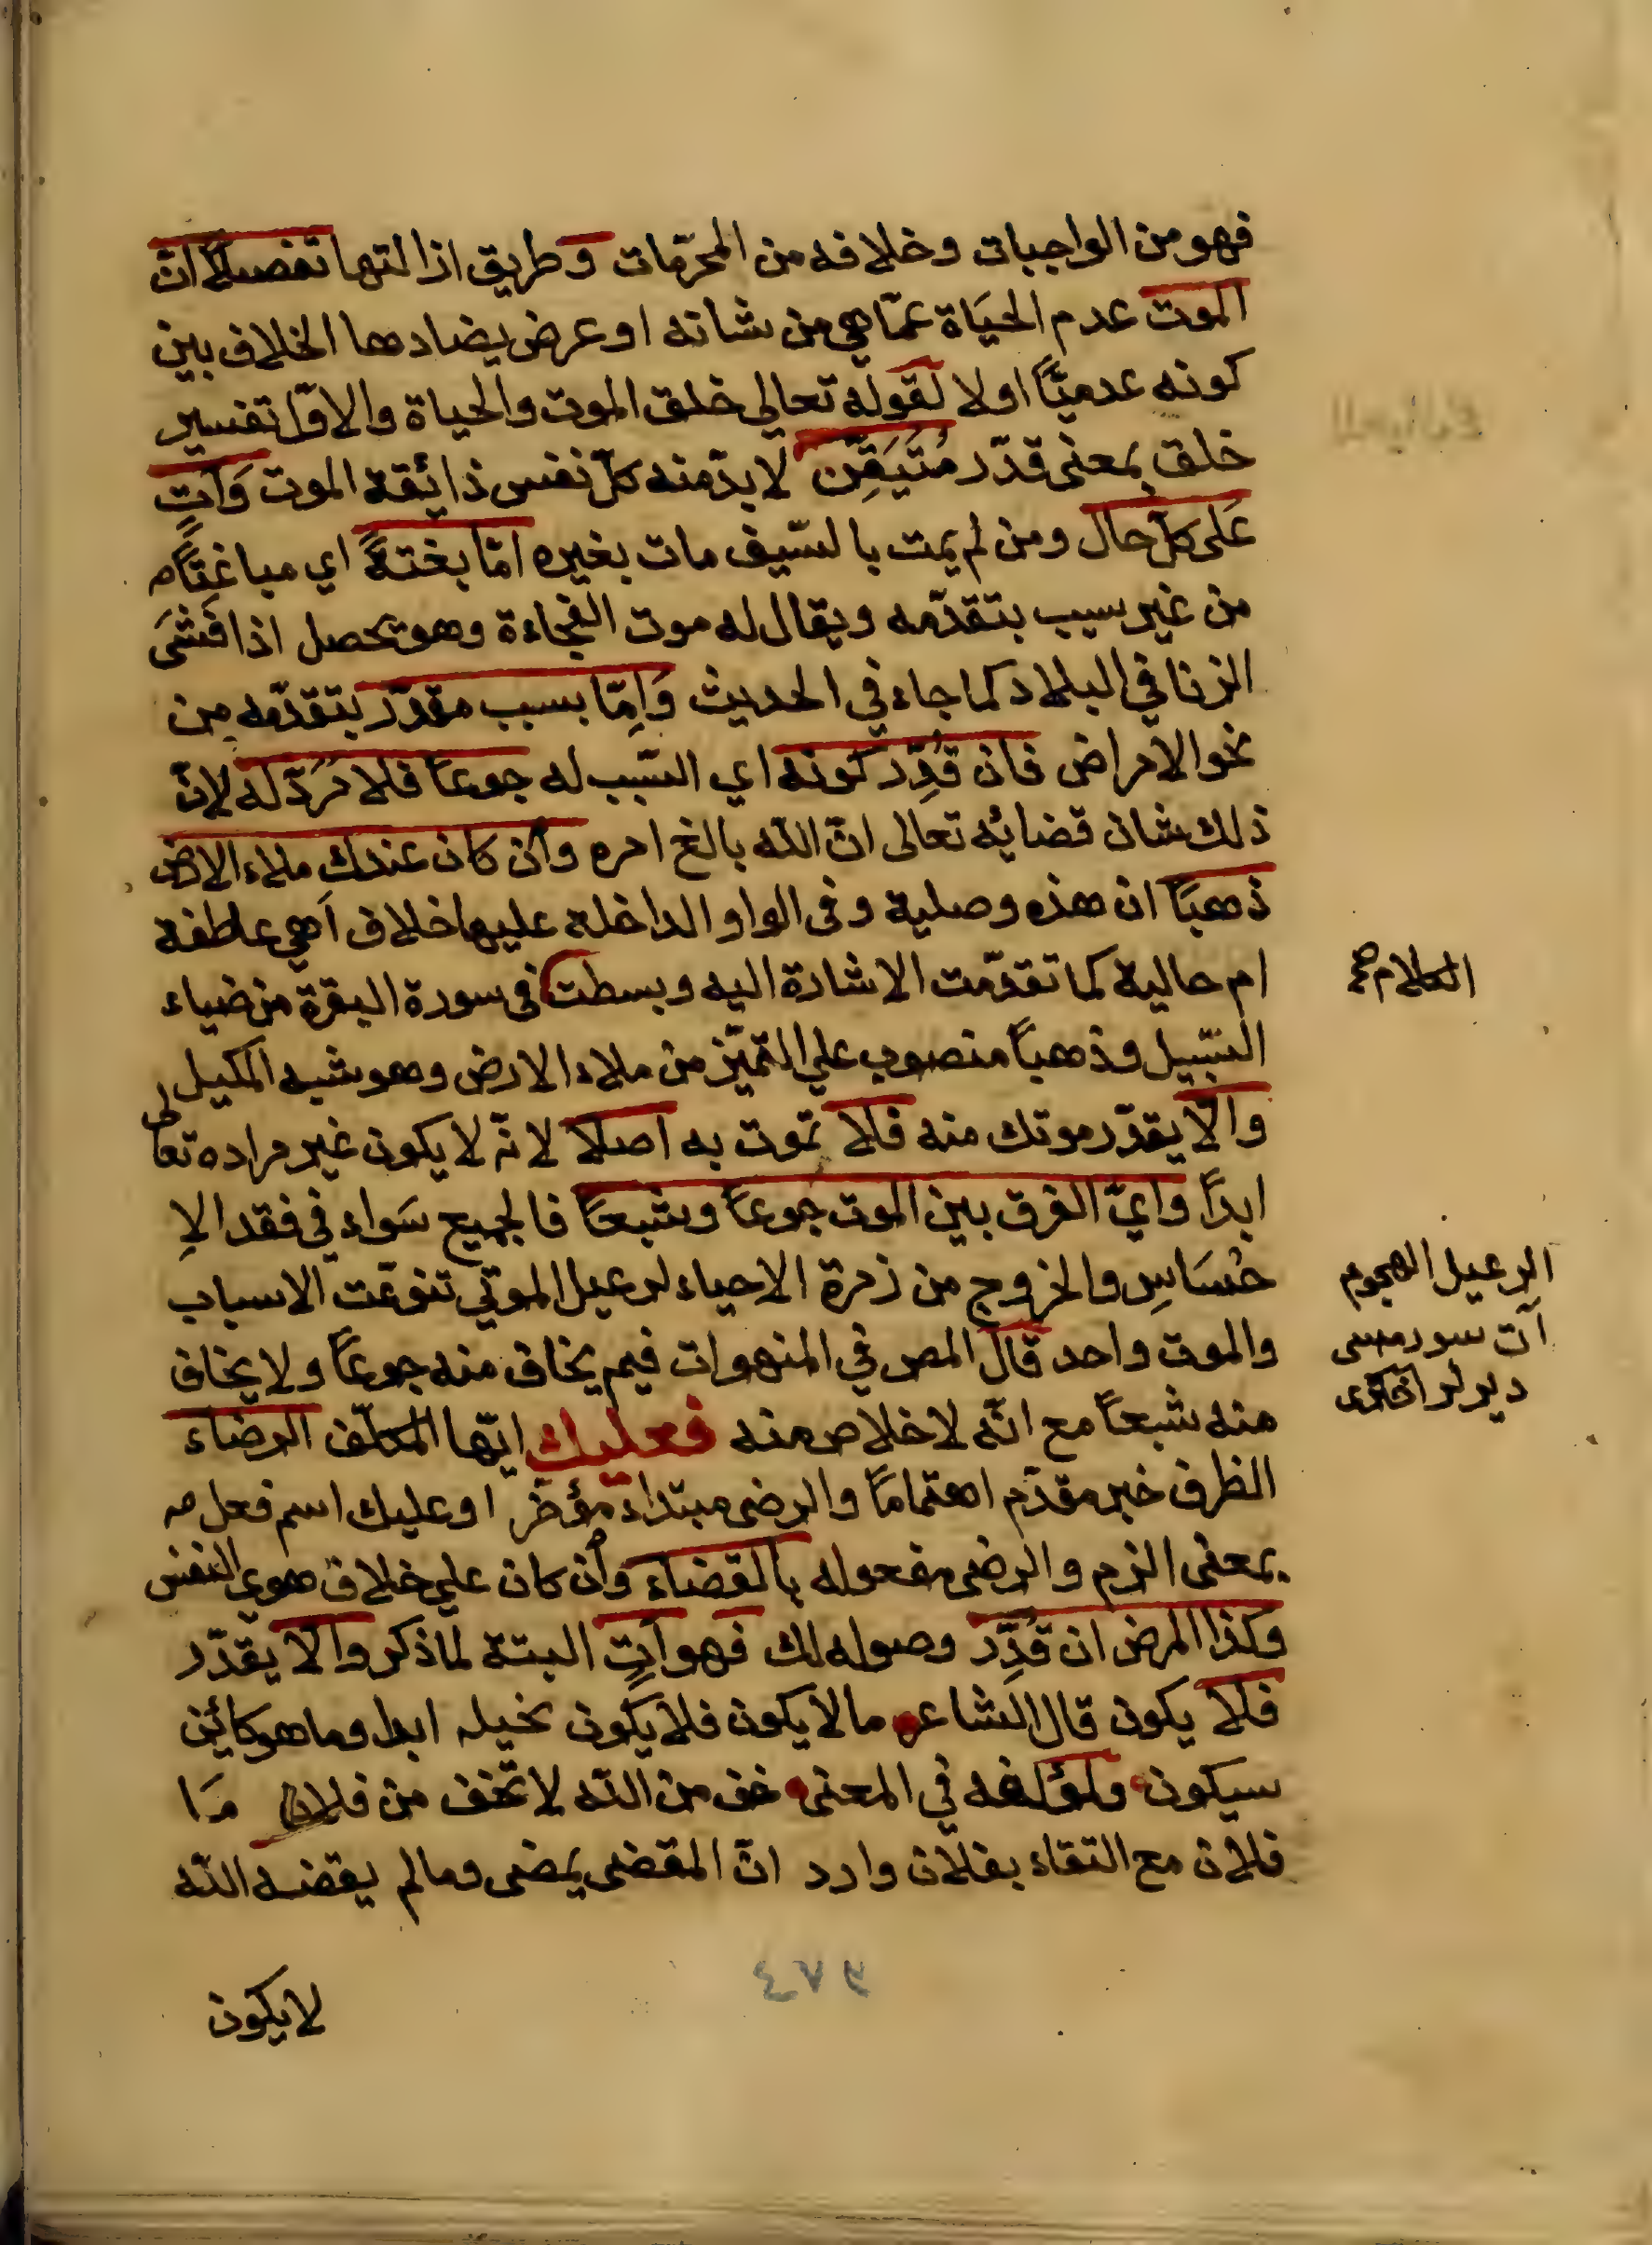 فهو من الواجبات وخلافه من المحرّمات وطريق ازالتها تفصيلاً انّ
الموت عدم الحيَاة عمّا هي من شانه او عرض يضادها الخلاف بين
كونه عدميّاً اولا لقوله تعالى خلق الموت والحياة والاوّل تفسير
خلق بمعنى قدّر مُتَيَقِّن لا بدّ منه كلّ نفس ذائقة الموت وَآتٍ
عَلى كلّ حال ومن لم يمت بالسّيف مات بغيره امّا بغتةً اي مباغتًا
من غير سبب يتقدّمه ويقال له موت الفجاءة وهو يحصل اذا فَشَى
الزنا في البلاد كما جاء في الحديث وَاِمّا بسبب مقدّر يتقدّمه من
نحو الامراض فان قُدِّر كونه اي السّبب له جوعاً فلا مَرَدّ له لانّ
ذلك شان قضائه تعالى انّ الله بالغ امره وان كان عندك ملاء الارض
ذهبَاً ان هذه وصلية وفى الواو الداخلة عليها خلاف اَهي عاطفة
ام حالية كما تقدّمت الاشارة اليه وبسطت فى سورة البقرة من ضياء
السّبيل وذهباً منصوب علي التّميّز من ملاء الارض وهو شبه المكيل
والّا يقدّر موتك منه فلا تموت به اصلا لانّه لا يكون غير مراده تعالى
ابدًا وايّ الفرق بين الموت جُوعاً وشبعاً فالجميع سَواء في فقد الاِ
حْسَاسِ والخروج من زمرة الاحياء لرعيل الموتي تنوّعت الاسباب
والموت واحد قال المص في المنهوات فيم يخاف منه جوعاً ولا يخاف
منه شبعاً مع انّه لا خلاص منه فعليك ايّها المكلّف الرضاء
الظرف خبر مقدّم اهتمامًا والرضى مبتداء مؤخّر او عليك اسم فعل
بمعنى الزم والرضى مفعوله بالقضاء وان كان علي خلاف هوي النفس
وكذا المرض ان قُدِّر وصوله لك فهو آتٍ البتة لما ذكر والّا يقدّر
فلا يكون قال الشاعر مالا يكون فلا يكون بحيلة ابدا وما هو كائن
سيكون ولمؤلفه في المعنى خف من الله لا تخف من فلان مَا
فلان مع التقاء بفلان وارد انّ المقضى يمضى ومالم يقضه الله
لا يكون
٤٧٩
الكلام صح
الرعيل الهجوم
آت سورمسى
ديرلر اخترى